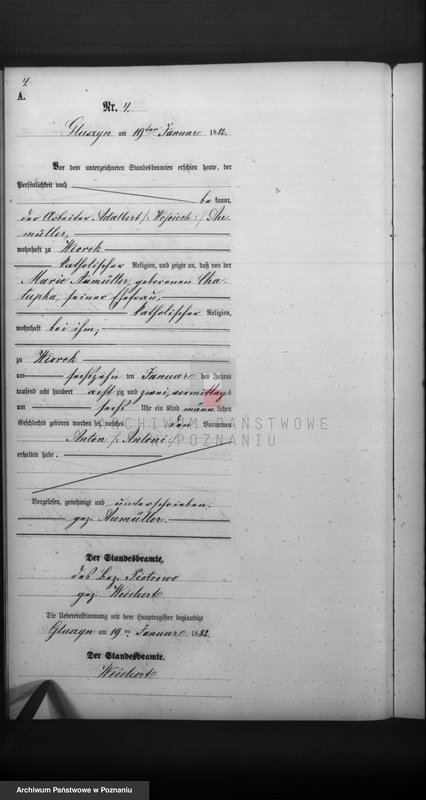 4.
A.
Nr. 4.
Gluszyn am 19ten Januar 1882.
Vor dem unterzeichneten Standesbeamten erschien heute, der
Persönlichkeit nach
be kannt,
der Arbeiter Adalbert /: Wojciech :/ Au-
müller,
wohnhaft zu Wiorek
katholischer Religion, und zeigte an, daß von der
Marie Aumüller, geborenen Cha-
lupka, seiner Ehefrau,
katholischer Religion,
wohnhaft bei ihm,
zu Wiorek
am sechszehn ten Januar des Jahres
tausend acht hundert acht zig und zwei, vormittags
um sechs Uhr ein Kind männ lichen
Geschlechts geboren worden sei, welches den Vornamen
Anton /: Antoni :/
erhalten habe.
Vorgelesen, genehmigt und unterschrieben.
gez. Aumüller.
Der Standesbeamte,
des Bez. Piotrowo
gez. Weichert
Die Uebereinstimmung mit dem Hauptregister beglaubigt
Gluszyn am 19ten Januar 1882.
Der Standesbeamte.
Weichert
ARCHIWUM PAŃSTWOWE
W POZNANIU
Archiwum Państwowe w Poznaniu